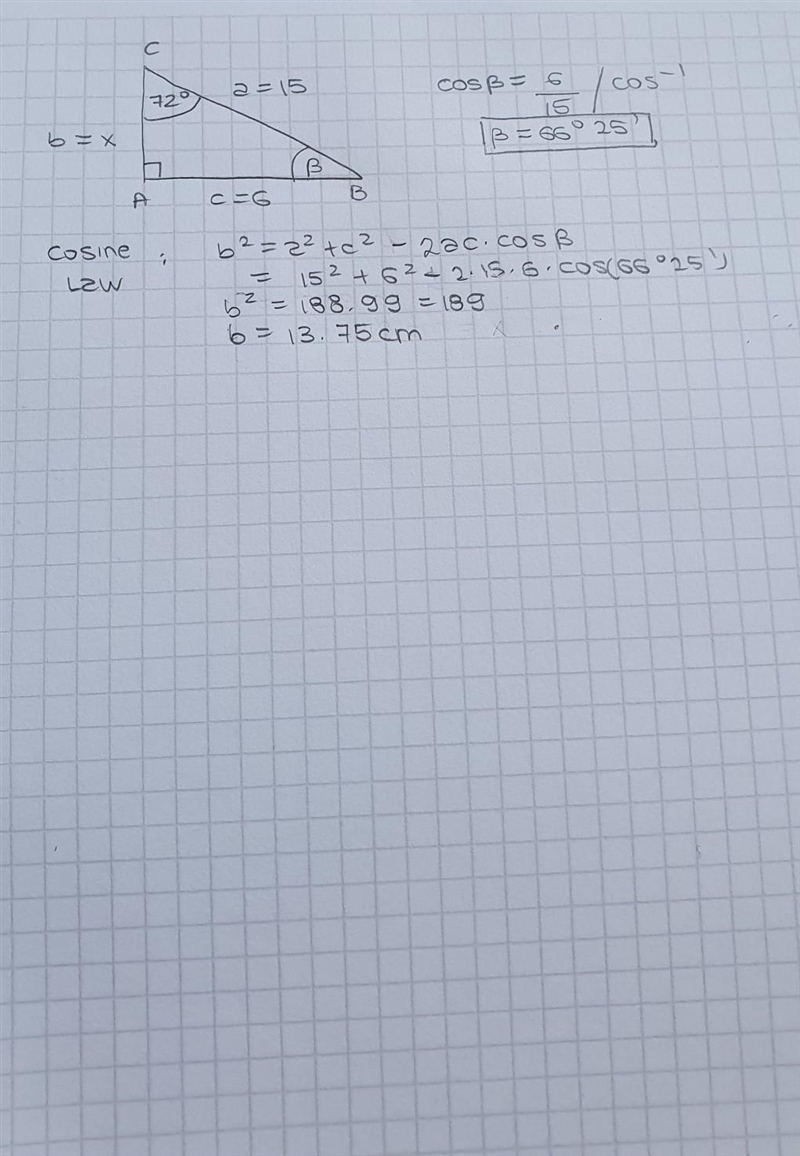 C
72° a = 15
b = x
β
A c = 6 B
cosβ = 6/15 / cos⁻¹
β = 66° 25'
cosine Law : b² = a² + c² - 2ac · cosβ
= 15² + 6² - 2 · 15 · 6 · cos(66° 25')
b² = 188.99 = 189
b = 13.75 cm